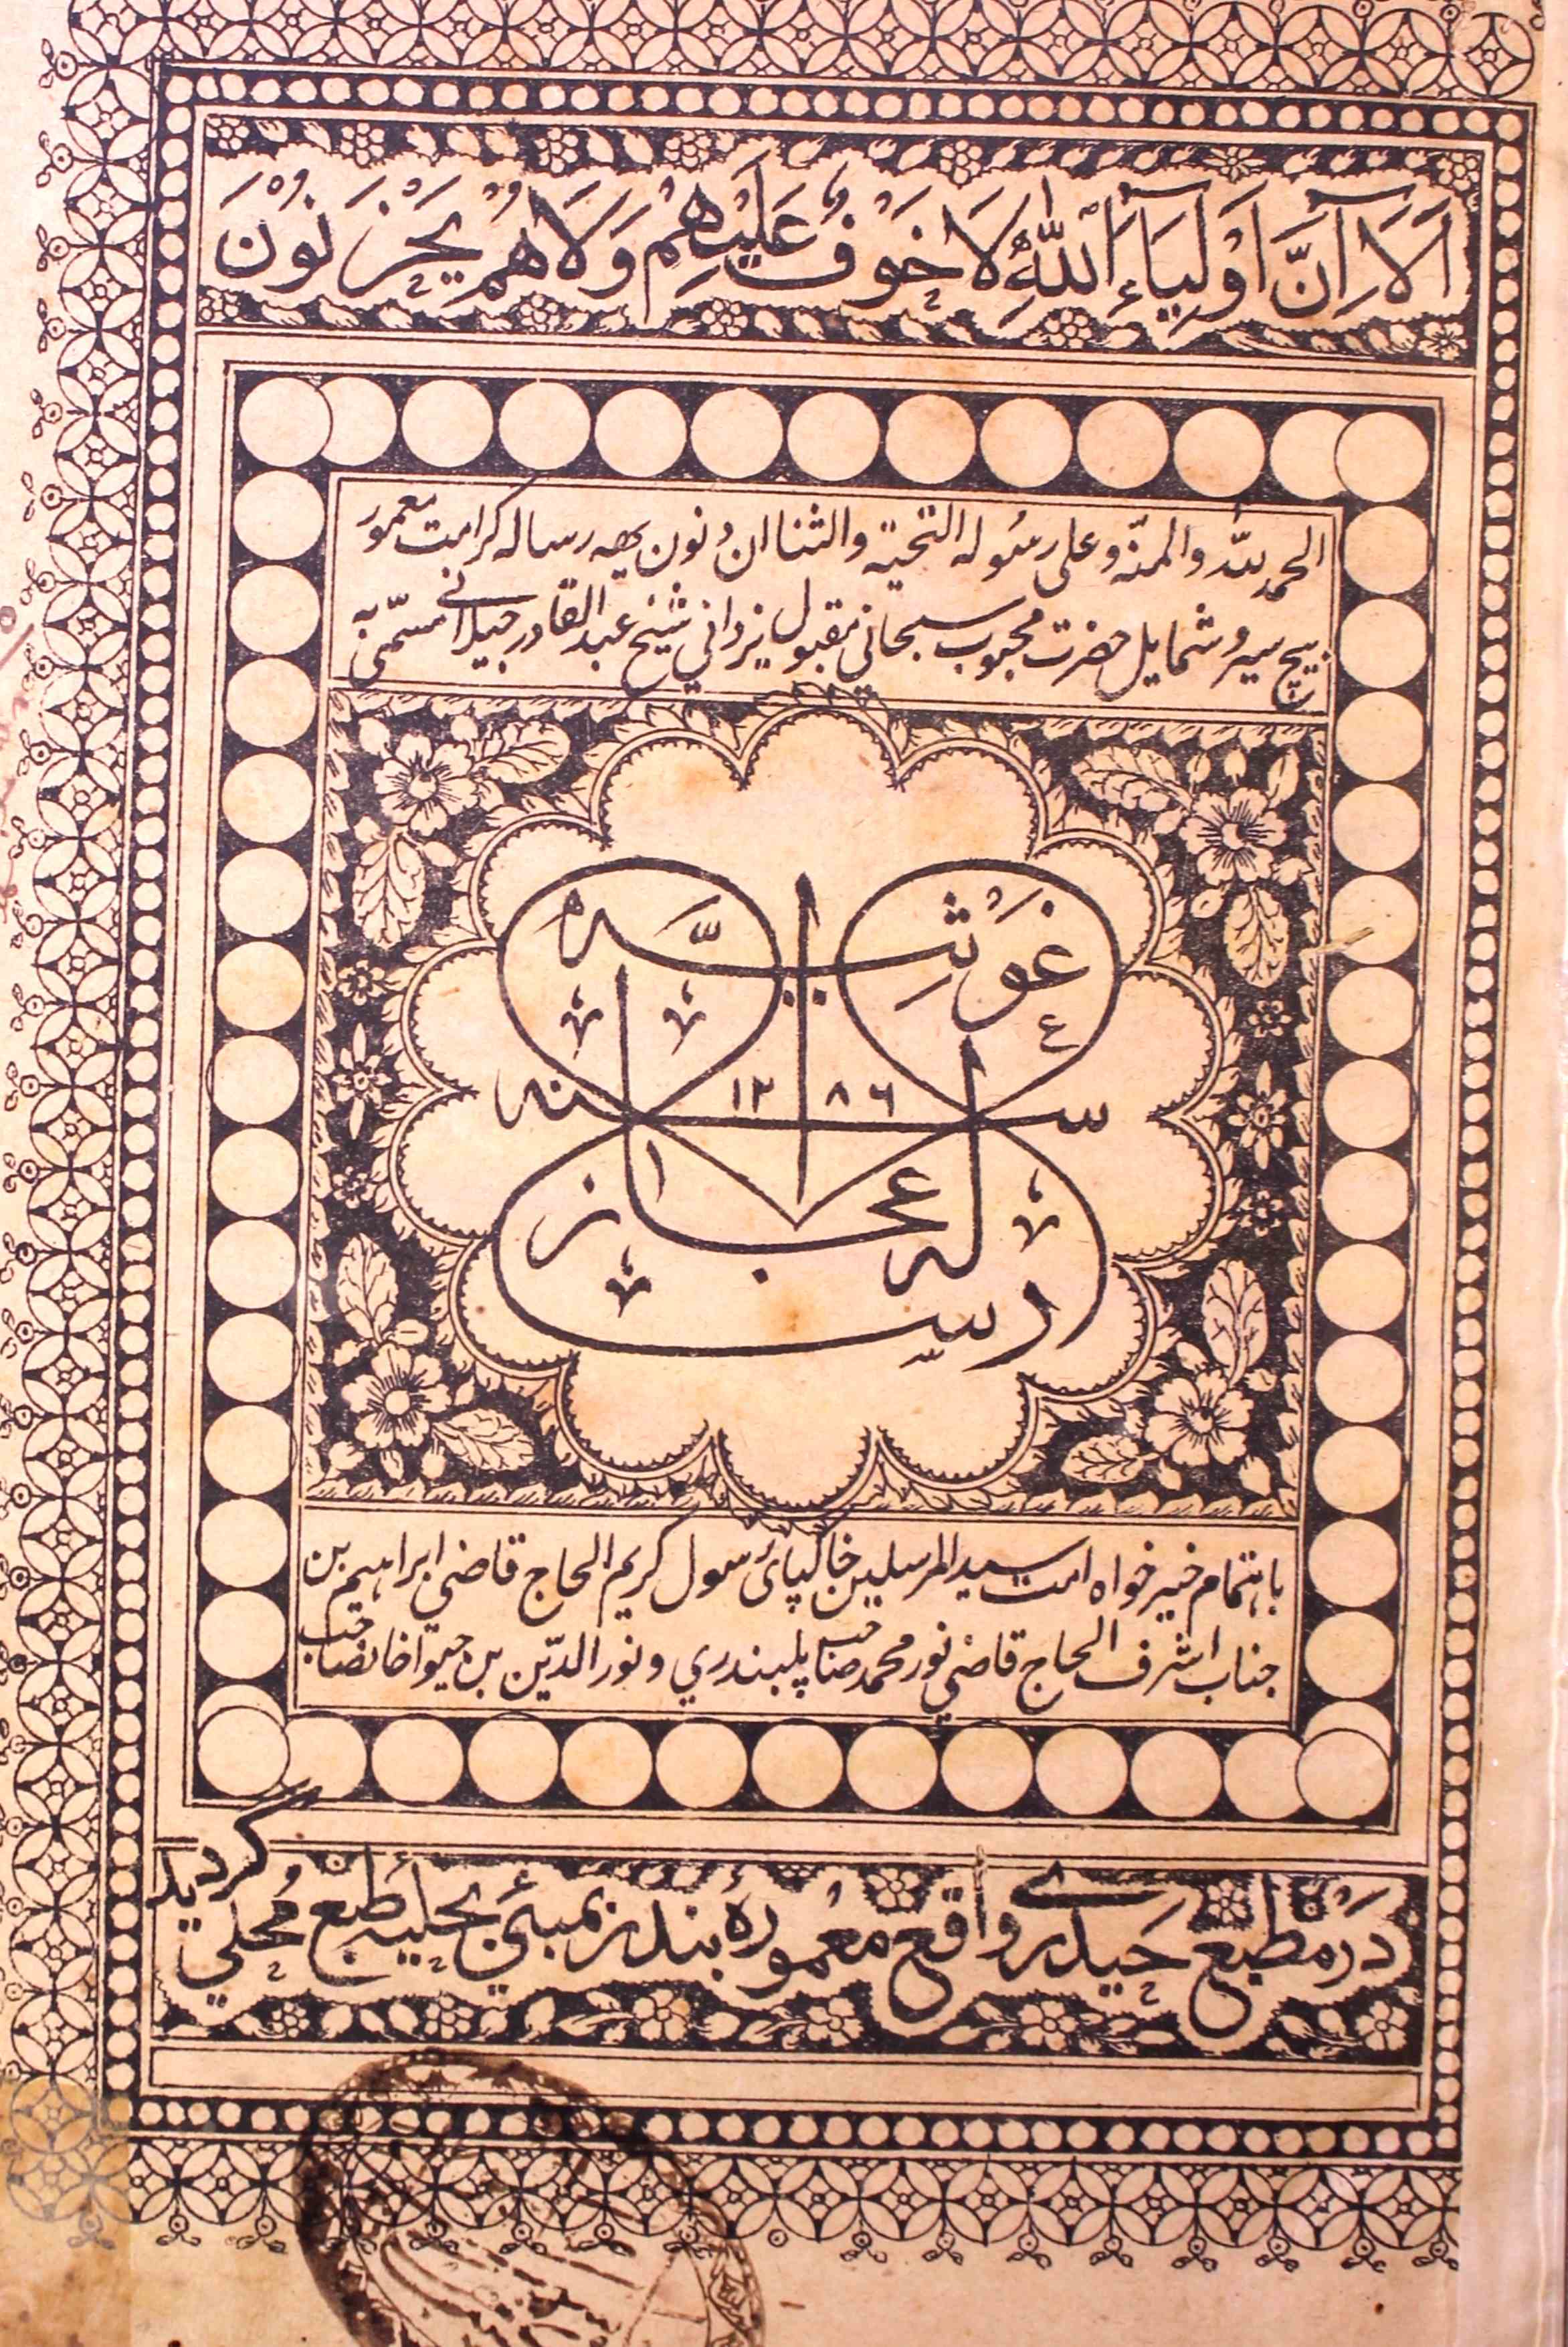 اَلَا اِنَّ اَوْلِيَآءَ اللّٰهِ لَا خَوْفٌ عَلَيْهِمْ وَلَا هُمْ يَحْزَنُوْنَ
الحمد للّٰہ والمنہ و علی رسولہ التحیۃ والثنا ان دنون یہہ رسالہ کرامت معمور
بیچ سیر و شمایل حضرت محبوب سبحانی مقبول یزدانی شیخ عبد القادر جیلانی مسمّیٰ بہ
رسالہ اعجاز غوثیہ
سنہ ١٢٨٦
باہتمام خیر خواہ امت سید المرسلین خاکپای رسول کریم الحاج قاضی ابراہیم بن
جناب اشرف الحاج قاضی نور محمد صاحب پلبندری و نور الدّین بن جیوا خانصاحب
در مطبع حیدرے واقع معمورہ بندر بمبئی بحلیہ طبع محلی گردید